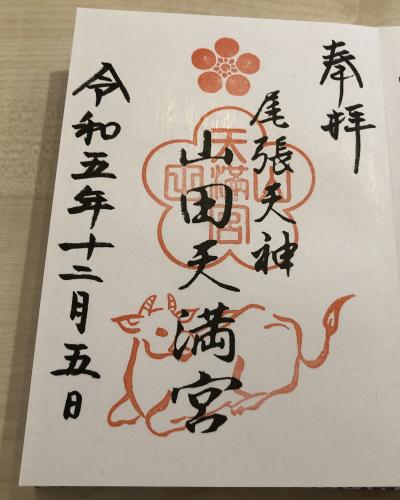 奉拝
尾張天神
山田天満宮
山田
天満宮
令和五年十二月五日